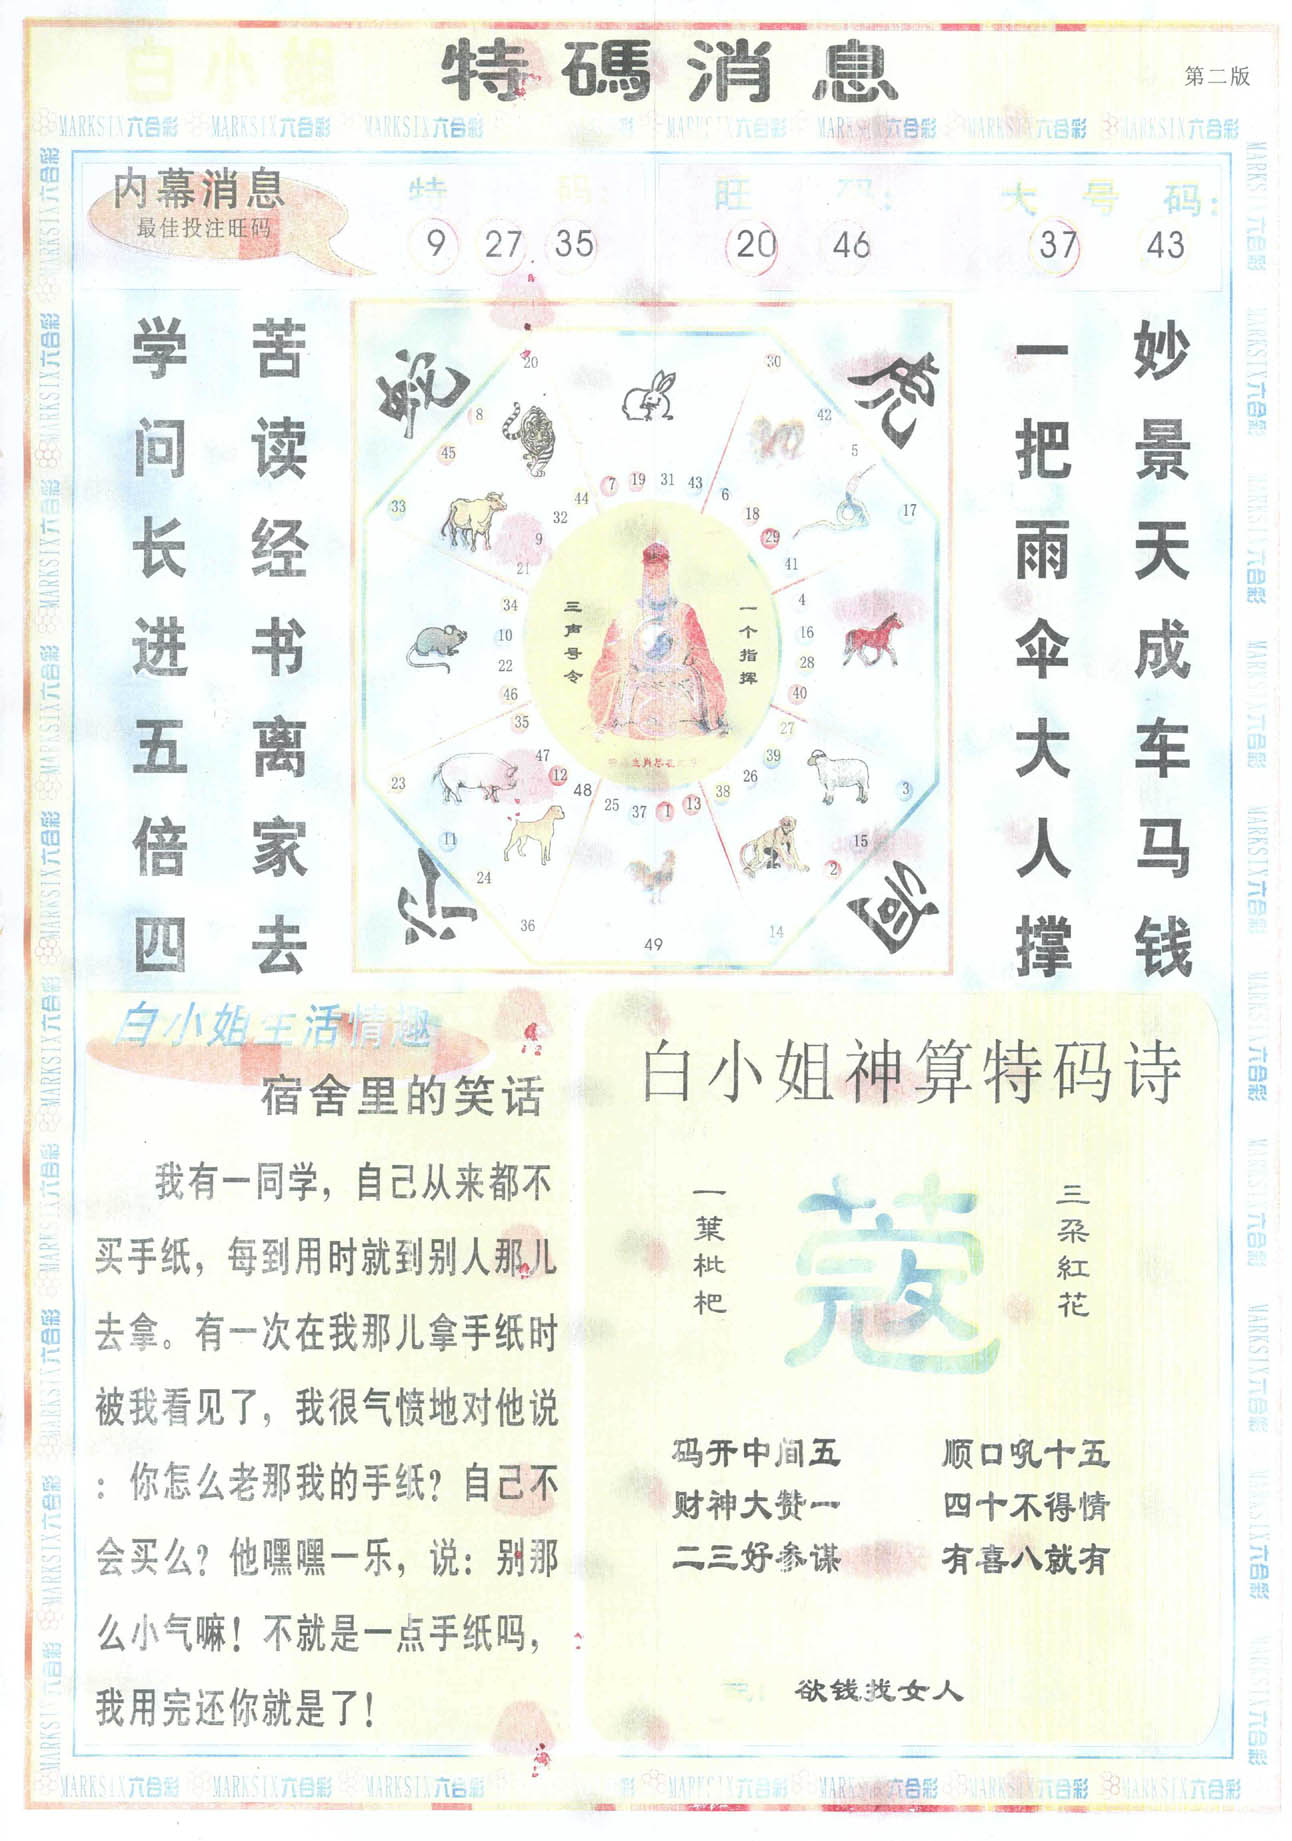 白小姐
特碼消息
第二版
MARKSIX六合彩 MARKSIX六合彩 MARKSIX六合彩 MARKSIX六合彩 MARKSIX六合彩 MARKSIX六合彩 MARKSIX六合彩
内幕消息
最佳投注旺码
特码:
9 27 35
旺码:
20 46
大号码:
37 43
妙景天成车马钱
一把雨伞大人撑
苦读经书离家去
学问长进五倍四
虎
20 30
8 42
45 5
33 17
7 19 31 43
44 6
32 18
9 29
21 41
34 4
10 16
22 28
46 40
35 27
47 39
12 26
48 38
25 37 1 13
23 3
11 15
24 2
36 14
49
一个指挥
三声号令
白小姐生活情趣
宿舍里的笑话
我有一同学，自己从来都不
买手纸，每到用时就到别人那儿
去拿。有一次在我那儿拿手纸时
被我看见了，我很气愤地对他说
：你怎么老那我的手纸？自己不
会买么？他嘿嘿一乐，说：别那
么小气嘛！不就是一点手纸吗，
我用完还你就是了！
白小姐神算特码诗
三朵紅花
蔻
一葉枇杷
码开中间五 顺口吼十五
财神大赞一 四十不得情
二三好参谋 有喜八就有
欲钱找女人
MARKSIX六合彩 MARKSIX六合彩 MARKSIX六合彩 MARKSIX六合彩 MARKSIX六合彩 MARKSIX六合彩 MARKSIX六合彩 MARKSIX六合彩